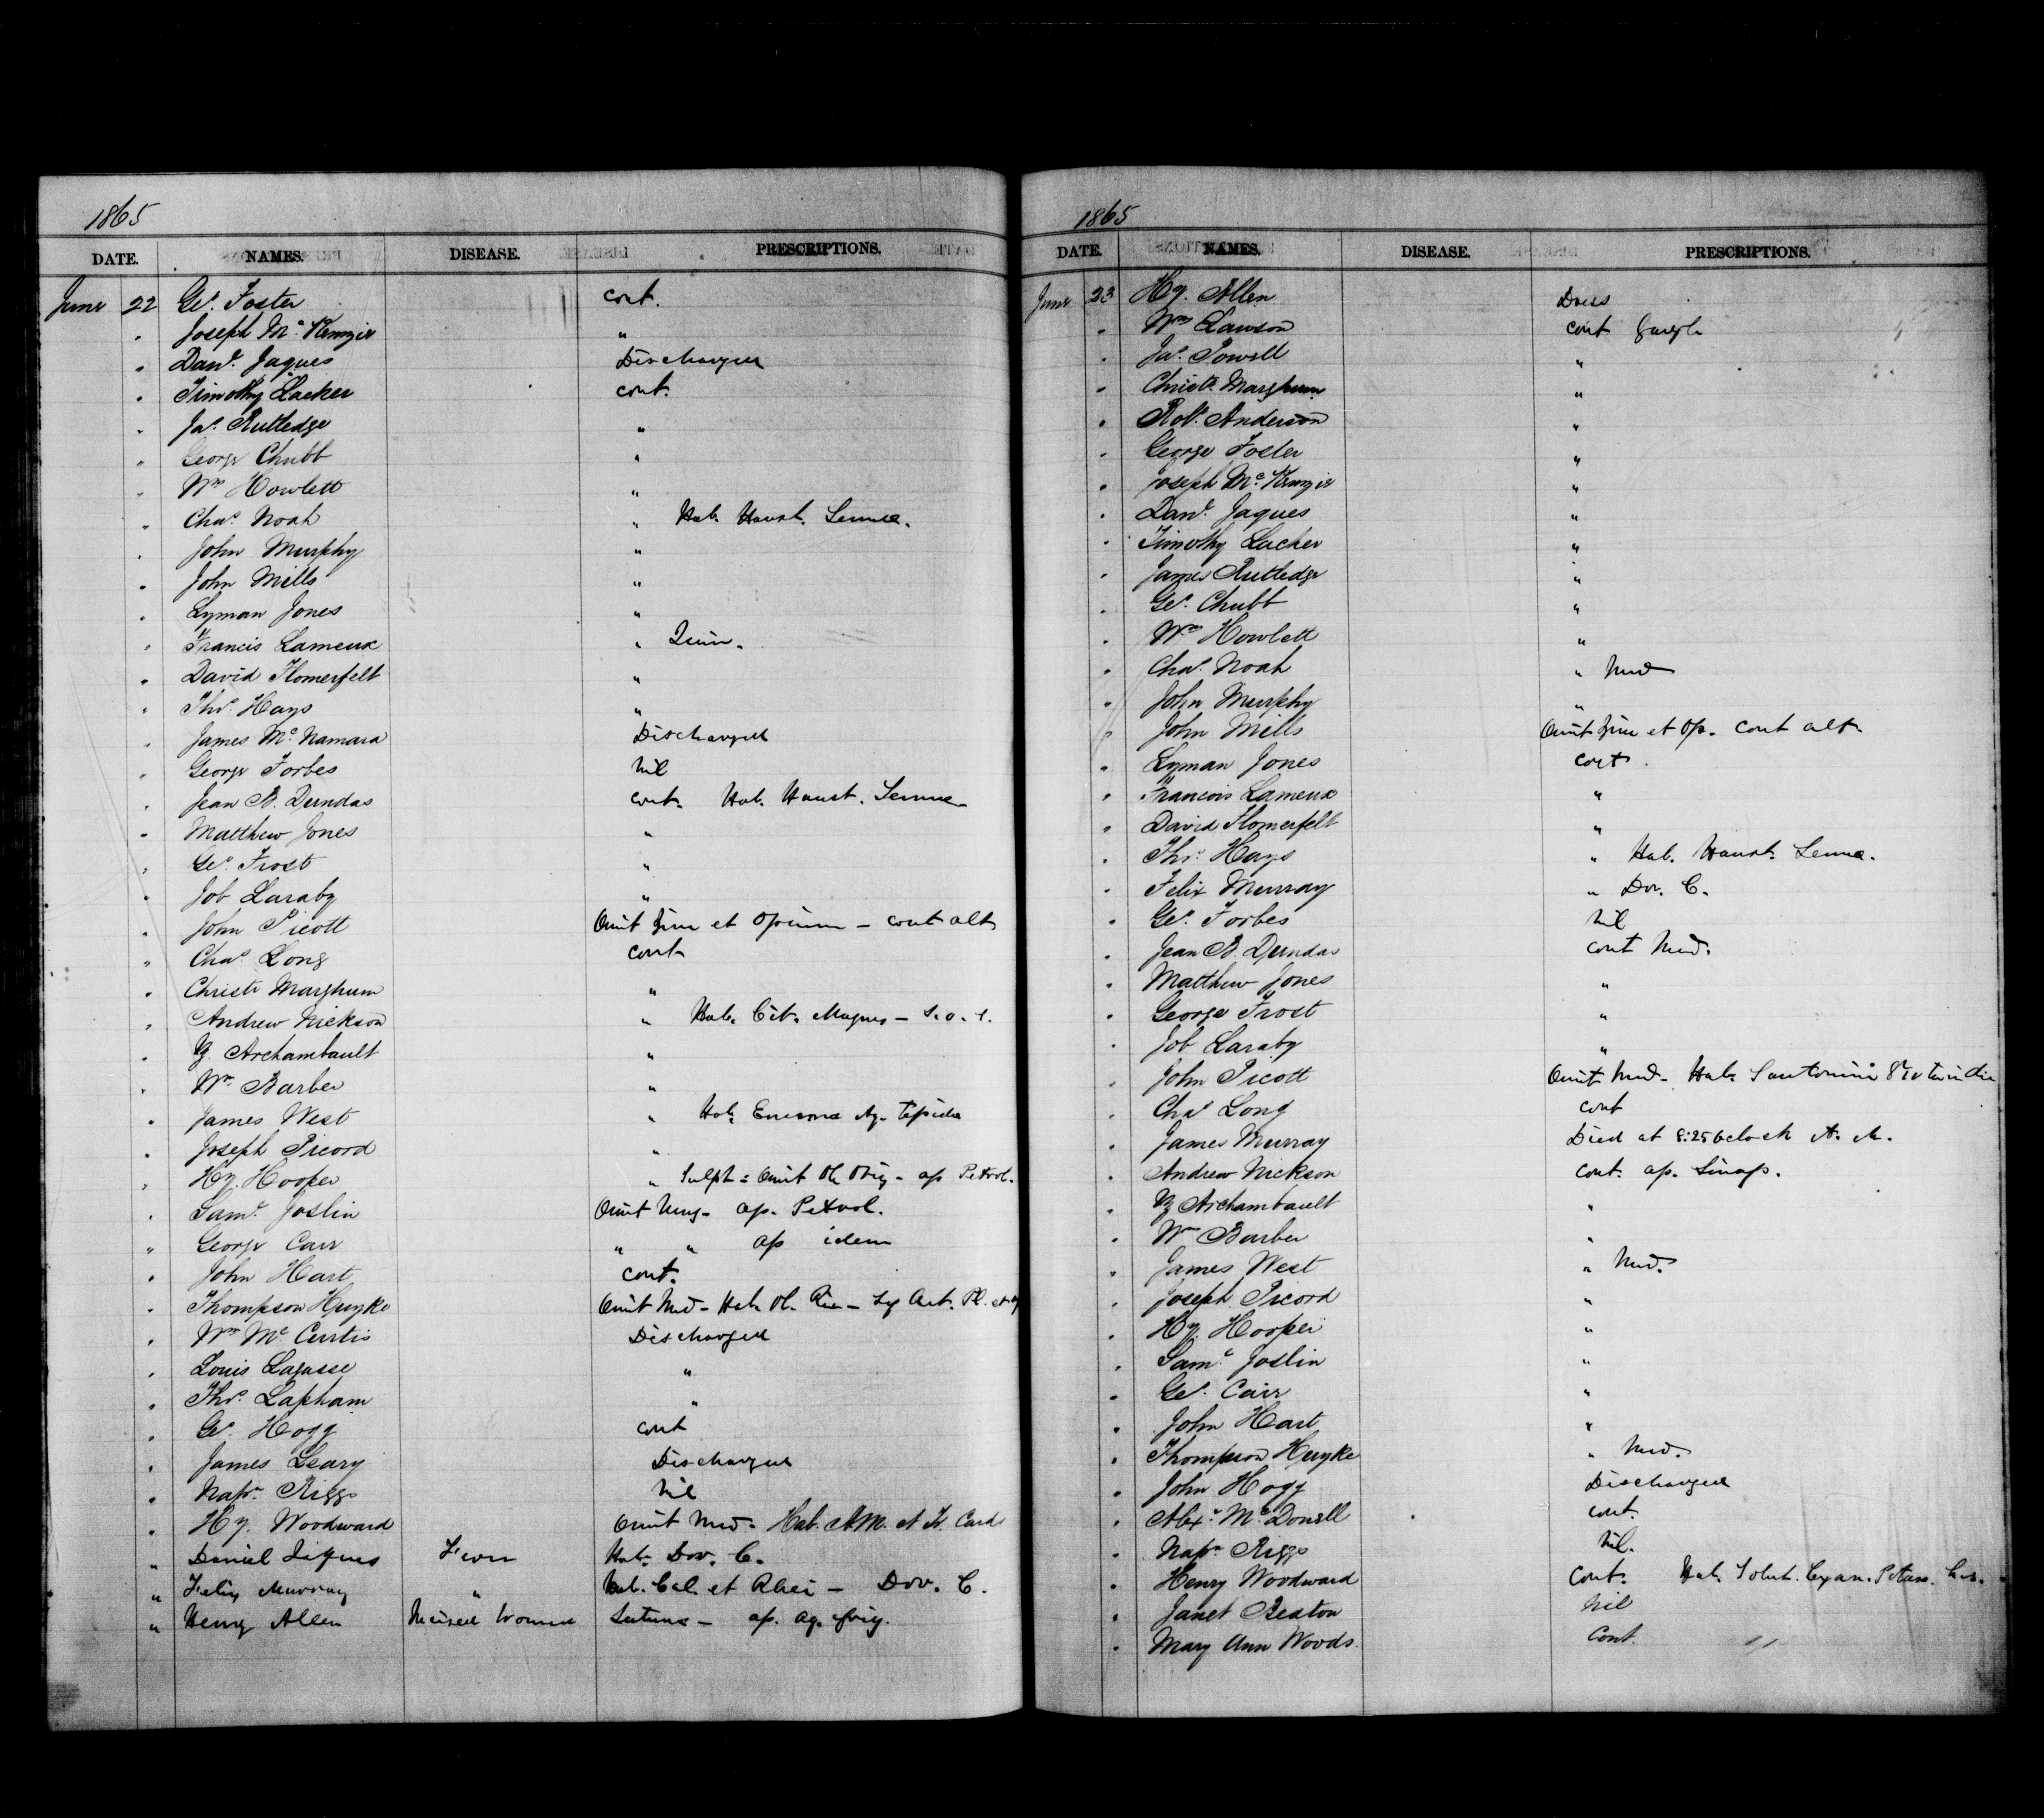 1865
DATE. NAMES. DISEASE. PRESCRIPTIONS.
June 22 Geo. Foster cont.
" Joseph McKenzie "
" Danl. Jaques Discharged
" Timothy Lacker cont.
" Jas. Rutledge "
" George Chubb "
" Wm Howlett "
" Chas. Noah " Hab. Haust. Sennae.
" John Murphy "
" John Mills "
" Lyman Jones "
" Francis Lameux " Quin.
" David Homerfelt "
" Thos. Hays "
" James McNamara Discharged
" George Forbes Nil
" Jean B. Dundas cont. Hab. Haust. Sennae
" Matthew Jones "
" Geo. Frost "
" Job Laraby "
" John Picott Omit Zinc et Opium - cont alt
" Chas. Long cont
" Christr Marghum "
" Andrew Nickson " Hab. Cit. Magnes -
" Z. Archambault "
" Wm. Barber "
" James West " Hab. Enema Aq. Tepidae
" Joseph Picord "
" Hy. Hooper " Sulph = Omit - ap Petrol.
" Saml. Joslin Omit Ung - ap. Petrol.
" George Carr " " ap idem
" John Hart cont.
" Thompson Huyke Omit Med - Hab. Ol. Ric -
" Wm McCurtis Discharged
" Louis Lagasse "
" Thos. Lapham "
" Geo. Hogg cont
" James Geary Discharged
" Napn. Riggs Nil
" Hy. Woodward Omit Med - Hab.
" Daniel Jaques Fever Hab. Dov. C.
" Felix Murray " Hab. Cal. et Rhei - Dov. C.
" Henry Allen Incised Wound Suture - ap. aq. frig.
1865
DATE. NAMES. DISEASE. PRESCRIPTIONS.
June 23 Hy. Allen Dress
" Wm Lawson cont Gargle
" Jas. Powell "
" Christr. Marghum "
" Robt. Anderson "
" George Foster "
" Joseph McKenzie "
" Danl. Jaques "
" Timothy Lacker "
" James Rutledge "
" Geo. Chubb "
" Wm Howlett "
" Chas. Noah " Med
" John Murphy "
" John Mills Omit Zinc et Op. cont alt.
" Lyman Jones cont.
" Francois Lameux "
" David Homerfelt "
" Thos. Hays " Hab. Haust. Sennae.
" Felix Murray " Dov. C.
" Geo. Forbes Nil
" Jean B. Dundas cont Med.
" Matthew Jones "
" George Frost "
" Job Laraby "
" John Picott Omit Med - Hab. Santonini
" Chas Long cont
" James Murray Died at 8:25 oclock A. M.
" Andrew Nickson cont. ap. Sinap.
" Z Archambault "
" Wm Barber "
" James West " Med.
" Joseph Picord "
" Hy. Hooper "
" Saml Joslin "
" Geo. Carr "
" John Hart "
" Thompson Huyke " Med.
" John Hogg Discharged
" Alexr. McDonell cont.
" Napn. Riggs Nil.
" Henry Woodward Cont. Hab. Solut. Cyan. Potass.
" Janet Bexton Nil
" Mary Ann Woods. Cont. "